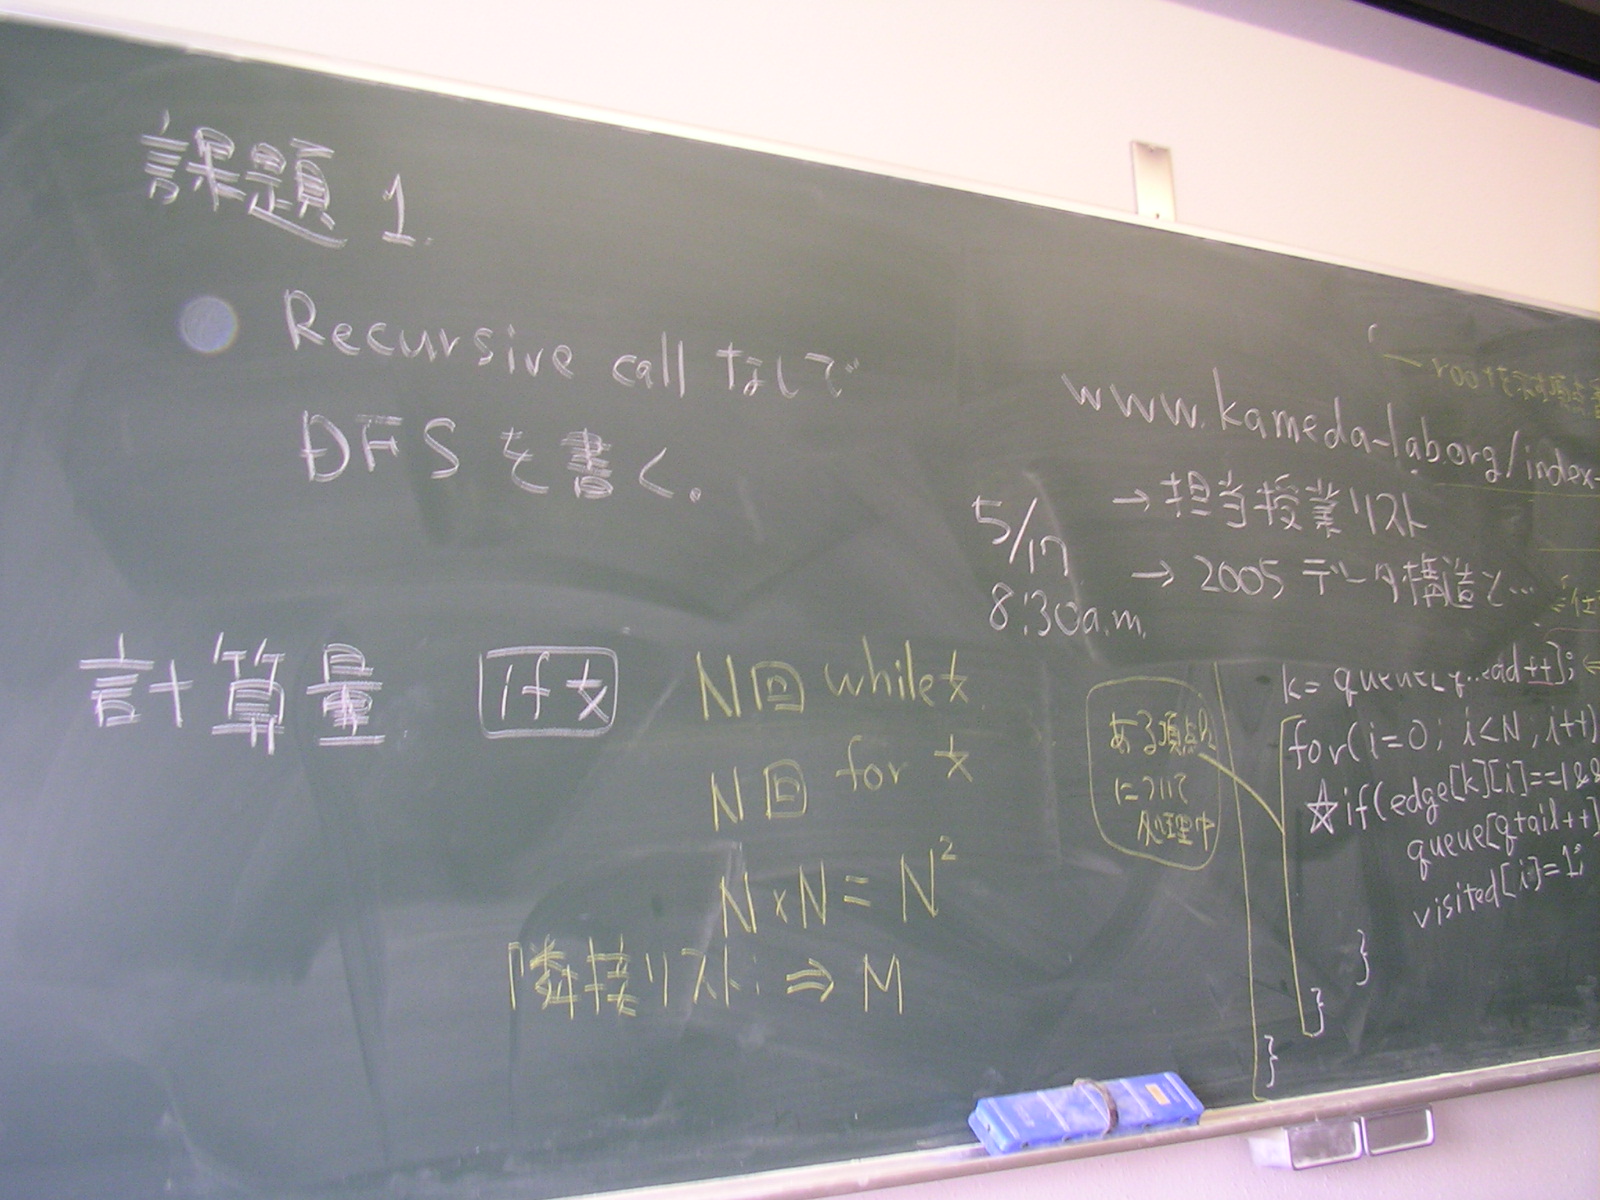 課題 1.
Recursive call なしで
DFS を書く。
計算量 if文
N回 while文
N回 for 文
N×N = N²
隣接リスト: ⇒ M
5/17
8:30a.m.
www.kameda-lab.org/index-
→ 担当授業リスト
→ 2005 データ構造と…
ある頂点k
について
処理中
k= ead++];
for(i=0; i<N; i++)
☆if(edge[k][i]==1&&
queue[qtail++]
visited[i]=1;
}
}
}